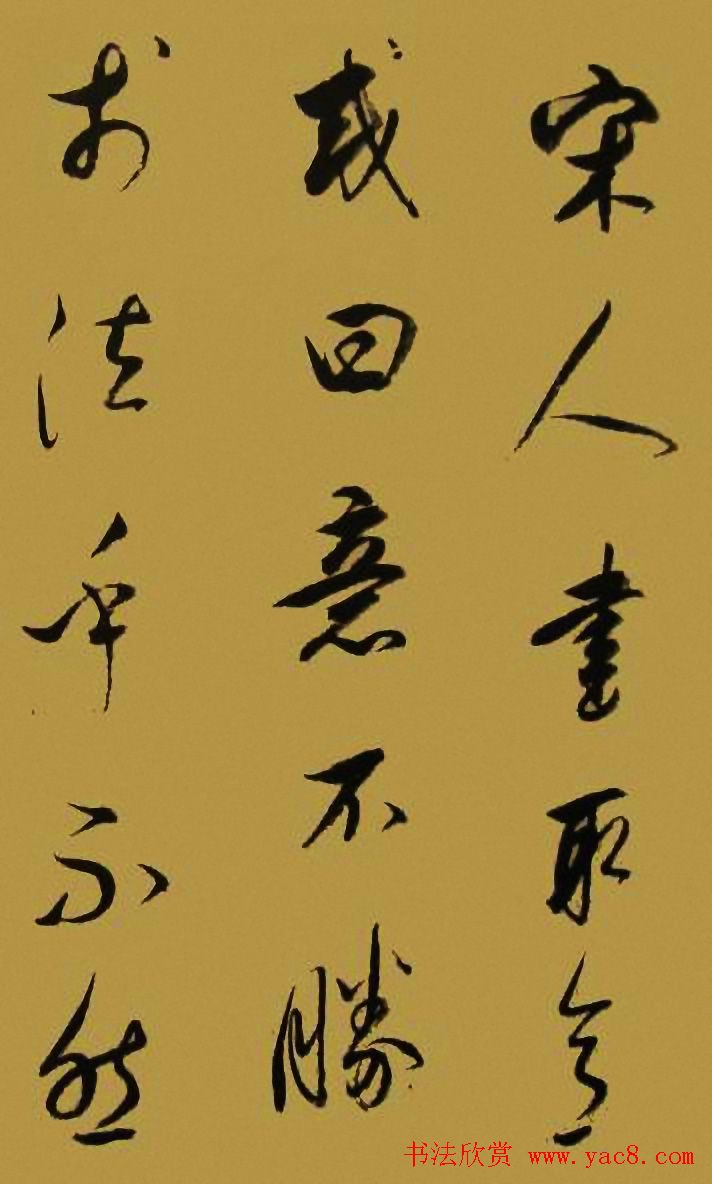 宋人書取意
或曰意不勝
於法乎不然
书法欣赏 www.yac8.com